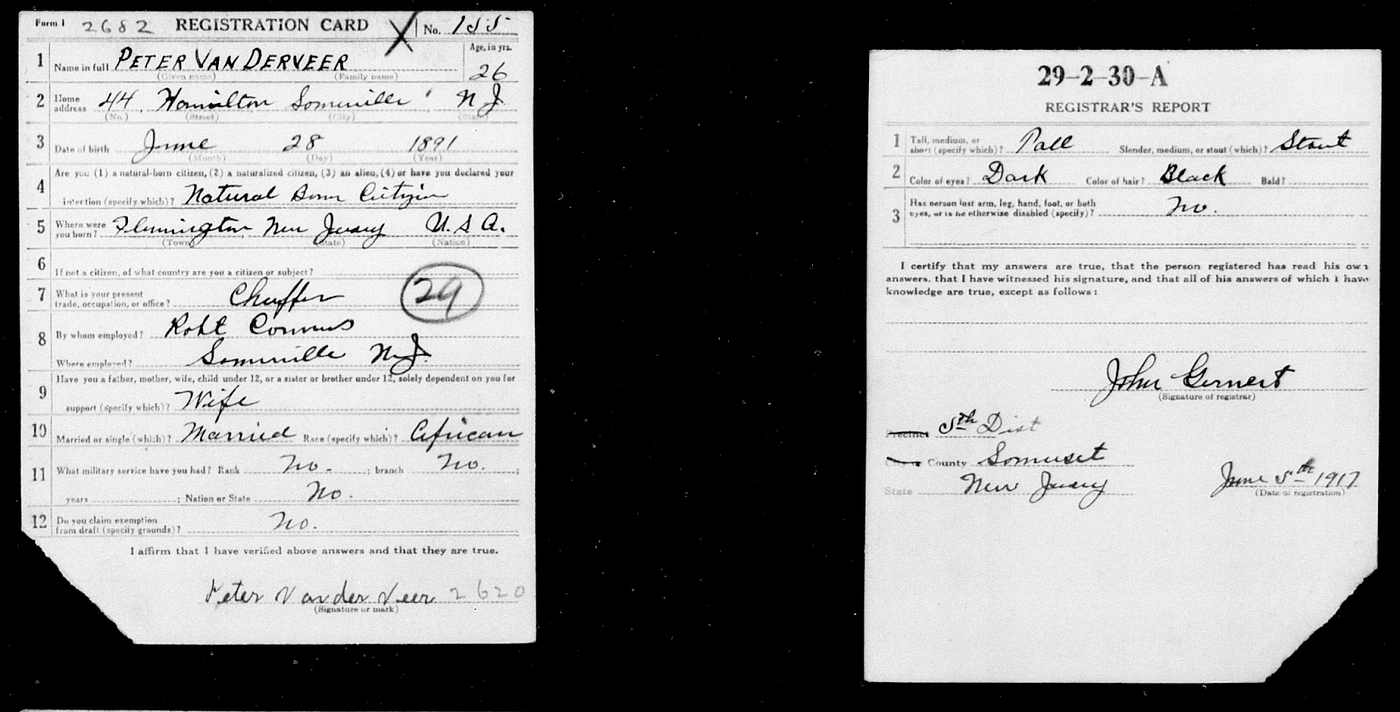 Form 1 2682 REGISTRATION CARD X No. 155
1 Name in full PETER VAN DERVEER Age, in yrs. 26
(Given name) (Family name)
2 Home address 44 Hamilton Somerville N J.
(No.) (Street) (City) (State)
3 Date of birth June 28 1891
(Month) (Day) (Year)
4 Are you (1) a natural-born citizen, (2) a naturalized citizen, (3) an alien, (4) or have you declared your
intention (specify which)? Natural Born Citizen
5 Where were you born? Flemington New Jersey U.S.A.
(Town) (State) (Nation)
6 If not a citizen, of what country are you a citizen or subject?
7 What is your present trade, occupation, or office? Chuffer 29
8 By whom employed? Robt
Where employed? Somerville N.J.
9 Have you a father, mother, wife, child under 12, or a sister or brother under 12, solely dependent on you for
support (specify which)? Wife
10 Married or single (which)? Married Race (specify which)? African
11 What military service have you had? Rank No. ; branch No. ;
years ; Nation or State No.
12 Do you claim exemption from draft (specify grounds)? No.
I affirm that I have verified above answers and that they are true.
Peter Van der Veer 2620
(Signature or mark)
29-2-30-A
REGISTRAR'S REPORT
1 Tall, medium, or short (specify which)? Tall Slender, medium, or stout (which)? Stout
2 Color of eyes? Dark Color of hair? Black Bald?
3 Has person lost arm, leg, hand, foot, or both eyes, or is he otherwise disabled (specify)? No.
I certify that my answers are true, that the person registered has read his own
answers, that I have witnessed his signature, and that all of his answers of which I have
knowledge are true, except as follows:
John Gernert
(Signature of registrar)
Precinct 5th Dist
County Somerset
State New Jersey June 5th 1917
(Date of registration)